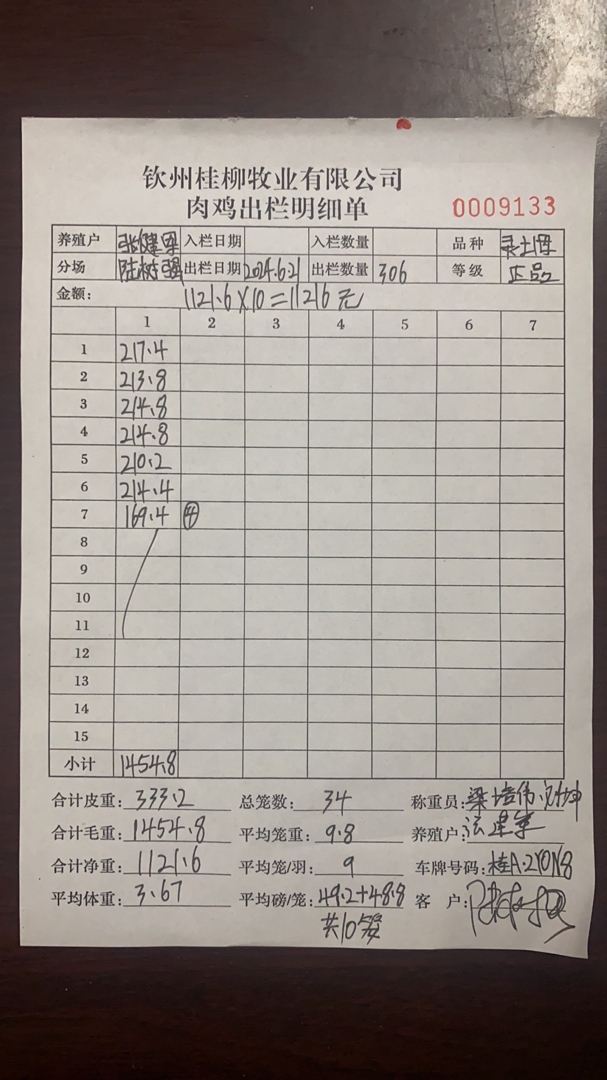 钦州桂柳牧业有限公司
肉鸡出栏明细单 0009133
养殖户 张建军 入栏日期 入栏数量 品种
分场 陆树强 出栏日期 2024.6.21 出栏数量 306 等级 正品
金额: 1121.6×10=11216元
1 2 3 4 5 6 7
1 217.4
2 213.8
3 214.8
4 214.8
5 210.2
6 214.4
7 169.4 ④
8
9
10
11
12
13
14
15
小计 1454.8
合计皮重: 333.2 总笼数: 34 称重员: 梁培伟
合计毛重: 1454.8 平均笼重: 9.8 养殖户:
合计净重: 1121.6 平均笼/羽: 9 车牌号码:
平均体重: 3.67 平均磅/笼: 49.2+48.8 客 户:
共10笼